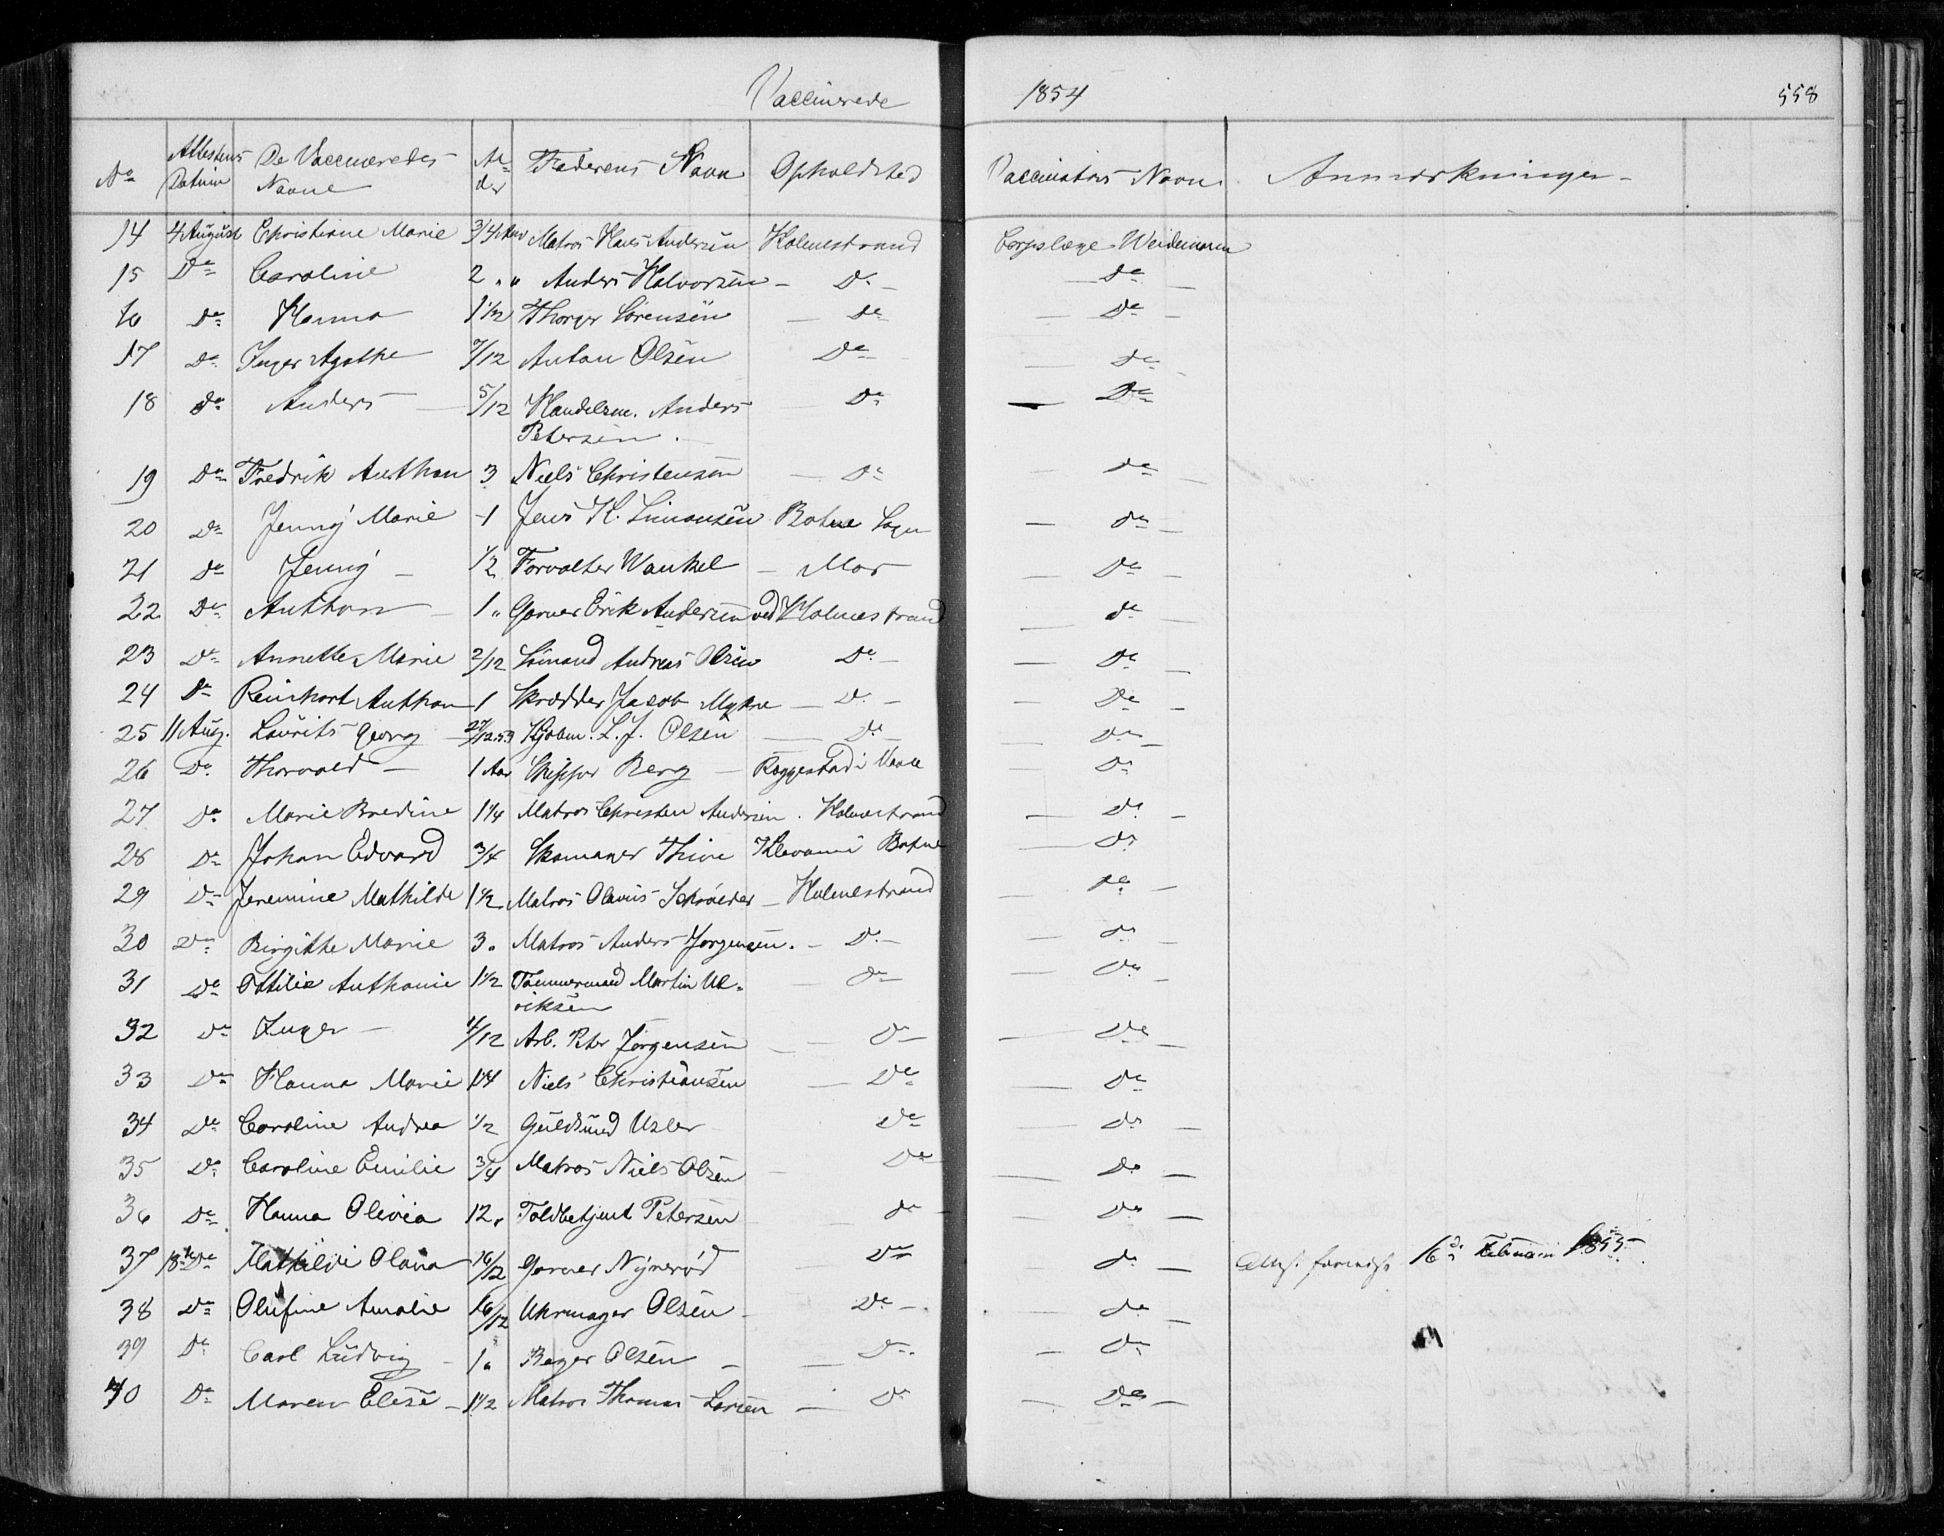 Vaccinerede 1854 558
No Attestens Datum De Vaccineredes Navne Alder Faderens Navn Opholdsted Vaccinators Navn Anmærkninger
14 4 August Christiane Marie 3/4 Aar Matros Hans Andersen Holmestrand Corpslæge Weidemann
15 Do Caroline 2 " Anders Halvorsen Do Do
16 Do Hanna 1 1/2 Thorger Sørensen Do Do
17 Do Inger Agathe 7/12 Anton Olsen Do Do
18 Do Anders 5/12 Handelsm. Anders Do Do
Petersen
19 Do Fredrik Anthon 3 Niels Christensen Do Do
20 Do Jenny Marie 1 Jens H. Simonsen Botne Sogn Do
21 Do Jenny 1/2 Forvalter Wankel Mor Do
22 Do Anthon 1 " Garver Erik Andersen ved Holmestrand Do
23 Do Annette Marie 2/12 Sömand Andreas Olsen Do Do
24 Do Reinhart Anthon 1 Skrædder Jacob Myhre Do Do
25 11 Aug. Laurits Georg 27/12 53 Kjøbm. L. J. Olsen Do Do
26 Do Thorvald 1 Aar Skipper Berg Roggestad i Vaale Do
27 Do Marie Bredine 1 1/4 Matros Christen Andersen Holmestrand Do
28 Do Johan Edvard 3/4 Skomager Thine Klevan i Botne Do
29 Do Jeremine Mathilde 1 1/2 Matros Olavus Schrøeder Holmestrand Do
30 Do Birgitte Marie 3 " Matros Anders Jørgensen Do Do
31 Do Ottilie Anthonie 1 1/2 Tømmermand Martin Ul- Do Do
riksen
32 Do Inger 4/12 Arb. Peter Jørgensen Do Do
33 Do Hanna Marie 1 1/4 Niels Christiansen Do Do
34 Do Caroline Andrea 1/2 Guldsmed Usler Do Do
35 Do Caroline Emilie 3/4 Matros Niels Olsen Do Do
36 Do Hanna Olivia 12 " Toldbetjent Petersen Do Do
37 18 Mathilde Olava 16/12 Garver Nyerød Do Do Attest 16de Februari 1855
38 Do Olufine Amalie 16/12 Uhrmager Olsen Do Do
39 Do Carl Ludvig 1 " Bager Olsen Do Do
40 Do Maren Elise 1 1/2 Matros Thomas Larsen Do Do